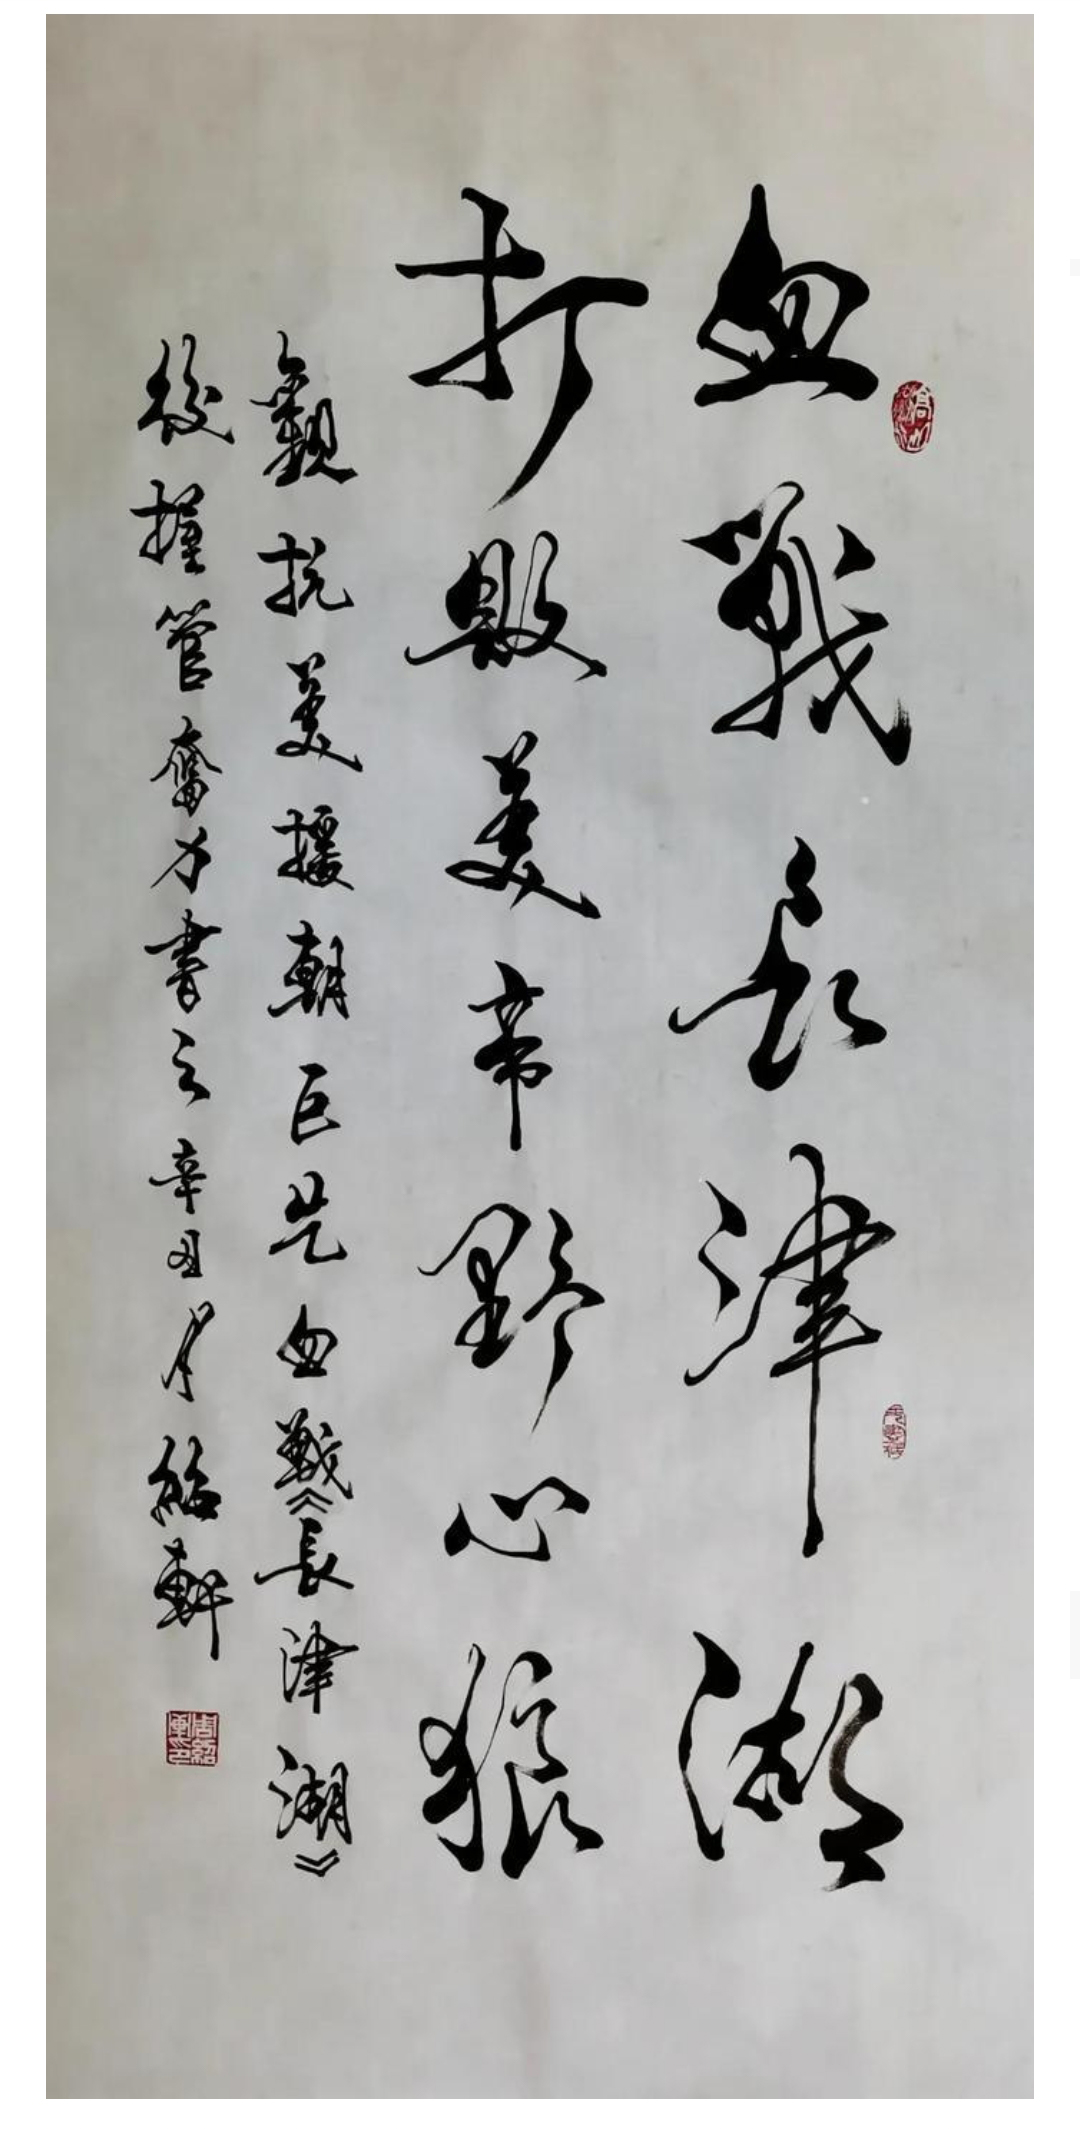 血戰長津湖
打敗美帝野心狼
觀抗美援朝巨片血戰《長津湖》
後握管奮力書之辛丑月紹軒